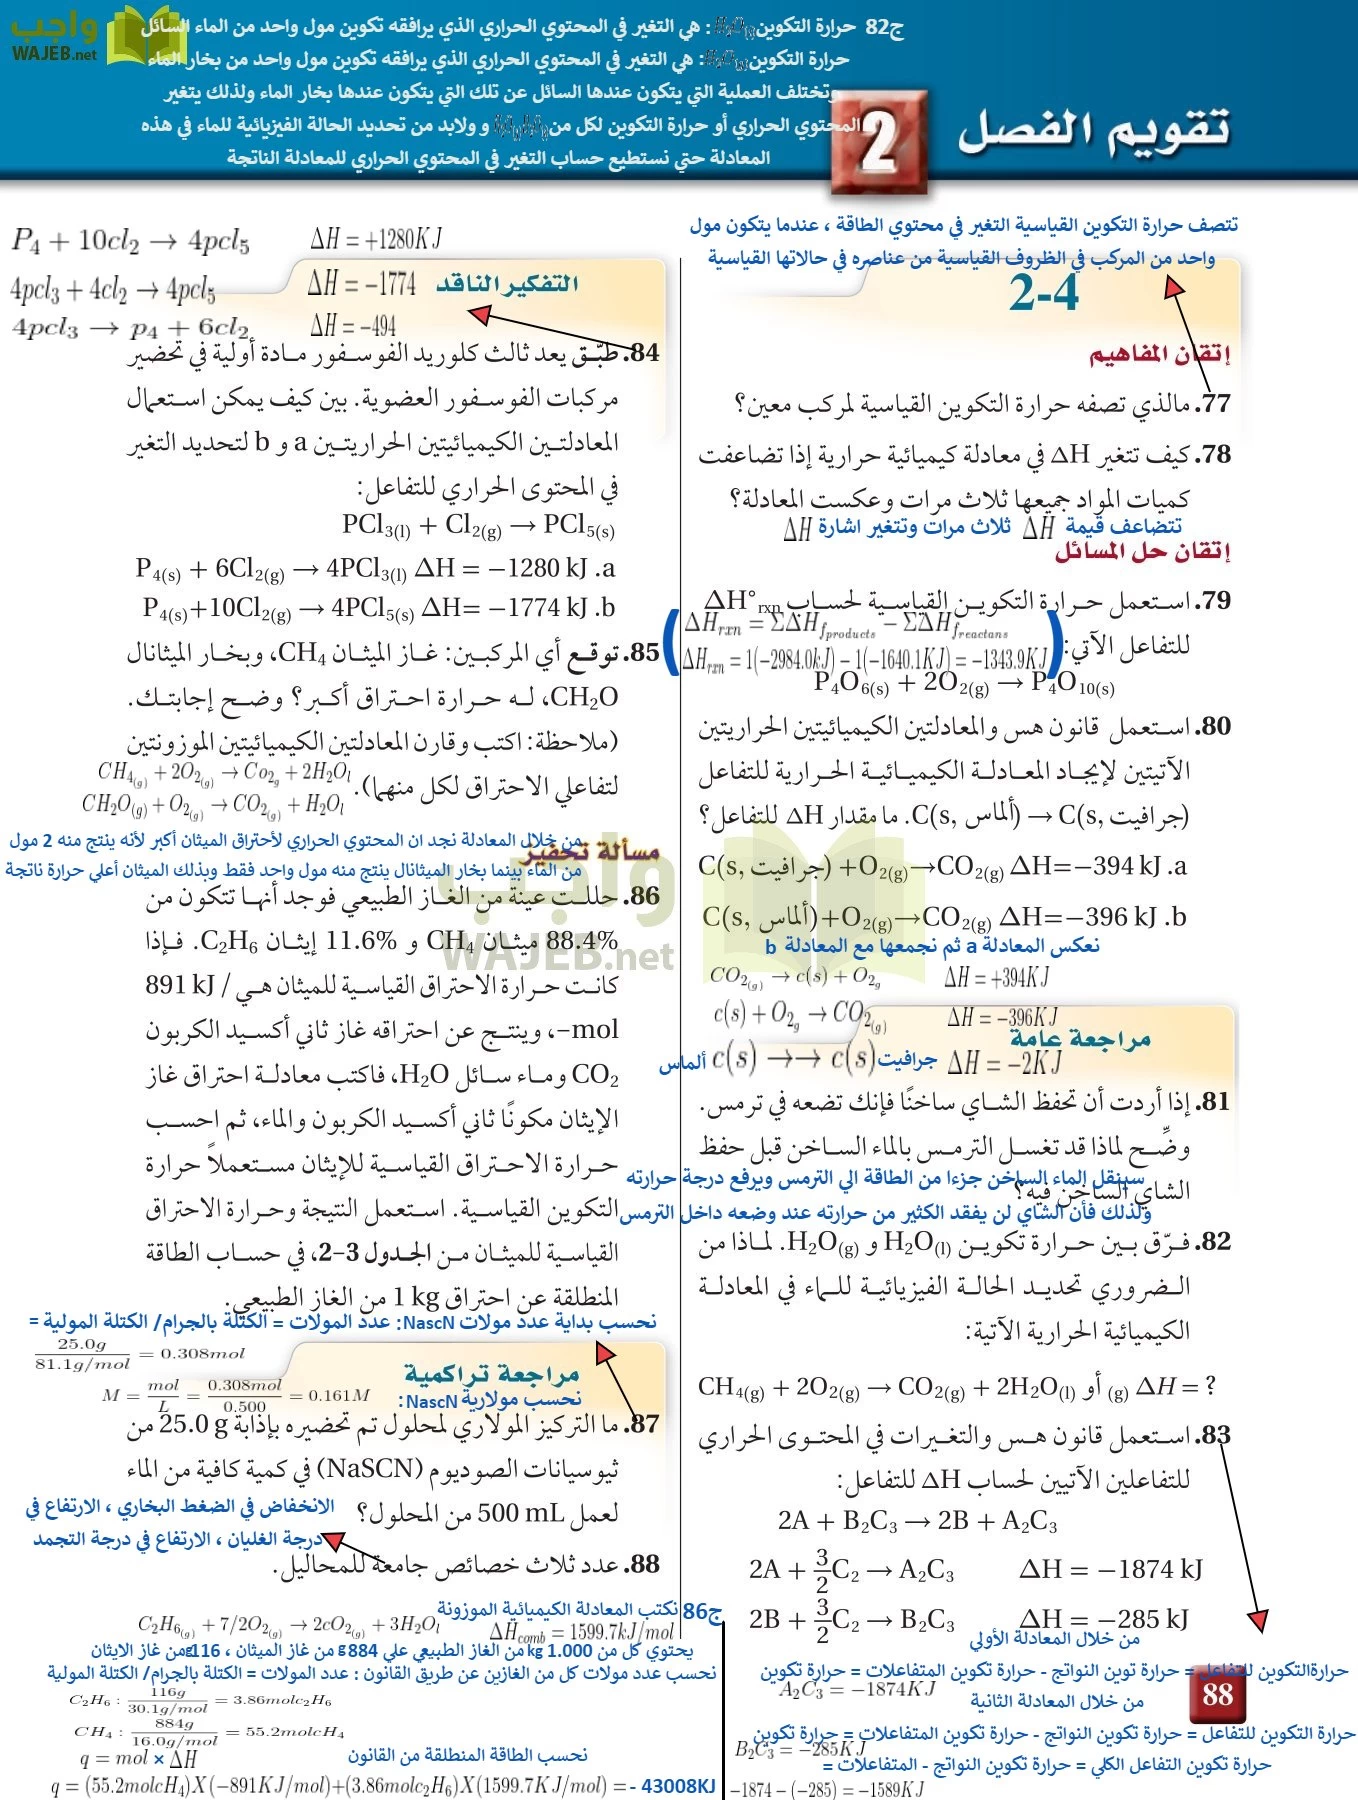 واجب
WAJEB.net
ج82 حرارة التكوين : هي التغير في المحتوي الحراري الذي يرافقه تكوين مول واحد من الماء السائل
حرارة التكوين : هي التغير في المحتوي الحراري الذي يرافقه تكوين مول واحد من بخار الماء
وتختلف العملية التي يتكون عندها السائل عن تلك التي يتكون عندها بخار الماء ولذلك يتغير
المحتوي الحراري أو حرارة التكوين لكل من و ولابد من تحديد الحالة الفيزيائية للماء في هذه
المعادلة حتي نستطيع حساب التغير في المحتوي الحراري للمعادلة الناتجة
تقويم الفصل 2
تتصف حرارة التكوين القياسية التغير في محتوي الطاقة ، عندما يتكون مول
واحد من المركب في الظروف القياسية من عناصره في حالاتها القياسية
2-4
إتقان المفاهيم
77. مالذي تصفه حرارة التكوين القياسية لمركب معين؟
78. كيف تتغير ΔH في معادلة كيميائية حرارية إذا تضاعفت
كميات المواد جميعها ثلاث مرات وعكست المعادلة؟
تتضاعف قيمة ΔH ثلاث مرات وتتغير اشارة ΔH
إتقان حل المسائل
79. استعمل حرارة التكوين القياسية لحساب ΔH°rxn
للتفاعل الآتي:
ΔHrxn = ΣΔHfproducts − ΣΔHfreactans
ΔHrxn = 1(−2984.0kJ) − 1(−1640.1KJ) = −1343.9KJ
P4O6(s) + 2O2(g) → P4O10(s)
80. استعمل قانون هس والمعادلتين الكيميائيتين الحراريتين
الآتيتين لإيجاد المعادلة الكيميائية الحرارية للتفاعل
C(s, ألماس) → C(s, جرافيت). ما مقدار ΔH للتفاعل؟
a. C(s, جرافيت) +O2(g)→CO2(g) ΔH=−394 kJ
b. C(s, ألماس)+O2(g)→CO2(g) ΔH=−396 kJ
نعكس المعادلة a ثم نجمعها مع المعادلة b
CO2(g) → c(s) + O2g ΔH = +394KJ
c(s) + O2g → CO2(g) ΔH = −396KJ
مراجعة عامة
ألماس c(s) →→ c(s) جرافيت ΔH = −2KJ
81. إذا أردت أن تحفظ الشاي ساخنًا فإنك تضعه في ترمس.
وضِّح لماذا قد تغسل الترمس بالماء الساخن قبل حفظ
الشاي الساخن فيه؟
سينقل الماء الساخن جزءا من الطاقة الي الترمس ويرفع درجة حرارته
ولذلك فأن الشاي لن يفقد الكثير من حرارته عند وضعه داخل الترمس
82. فرّق بين حرارة تكوين H2O(l) و H2O(g). لماذا من
الضروري تحديد الحالة الفيزيائية للماء في المعادلة
الكيميائية الحرارية الآتية:
CH4(g) + 2O2(g) → CO2(g) + 2H2O(l) أو (g) ΔH = ?
83. استعمل قانون هس والتغيرات في المحتوى الحراري
للتفاعلين الآتيين لحساب ΔH للتفاعل:
2A + B2C3 → 2B + A2C3
2A + 3/2C2 → A2C3 ΔH = −1874 kJ
2B + 3/2C2 → B2C3 ΔH = −285 kJ
من خلال المعادلة الأولي
حرارةالتكوين للتفاعل = حرارة توين النواتج - حرارة تكوين المتفاعلات = حرارة تكوين
A2C3 = −1874KJ
من خلال المعادلة الثانية
حرارة التكوين للتفاعل = حرارة تكوين النواتج - حرارة تكوين المتفاعلات = حرارة تكوين
B2C3 = −285KJ
حرارة تكوين التفاعل الكلي = حرارة تكوين النواتج - المتفاعلات =
−1874 − (−285) = −1589KJ
88
P4 + 10cl2 → 4pcl5 ΔH = +1280KJ
4pcl3 + 4cl2 → 4pcl5 ΔH = −1774
4pcl3 → p4 + 6cl2 ΔH = −494
التفكير الناقد
84. طبّق يعد ثالث كلوريد الفوسفور مادة أولية في تحضير
مركبات الفوسفور العضوية. بين كيف يمكن استعمال
المعادلتين الكيميائيتين الحراريتين a و b لتحديد التغير
في المحتوى الحراري للتفاعل:
PCl3(l) + Cl2(g) → PCl5(s)
a. P4(s) + 6Cl2(g) → 4PCl3(l) ΔH = −1280 kJ
b. P4(s)+10Cl2(g) → 4PCl5(s) ΔH= −1774 kJ
85. توقع أي المركبين: غاز الميثان CH4، وبخار الميثانال
CH2O، له حرارة احتراق أكبر؟ وضح إجابتك.
(ملاحظة: اكتب وقارن المعادلتين الكيميائيتين الموزونتين
لتفاعلي الاحتراق لكل منهما).
CH4(g) + 2O2(g) → Co2g + 2H2Ol
CH2O(g) + O2(g) → CO2(g) + H2Ol
من خلال المعادلة نجد ان المحتوي الحراري لأحتراق الميثان أكبر لأنه ينتج منه 2 مول
من الماء بينما بخار الميثانال ينتج منه مول واحد فقط وبذلك الميثان أعلي حرارة ناتجة
مسألة تحفيز
86. حللت عينة من الغاز الطبيعي فوجد أنها تتكون من
88.4% ميثان CH4 و 11.6% إيثان C2H6. فإذا
كانت حرارة الاحتراق القياسية للميثان هي 891 kJ /
mol−، وينتج عن احتراقه غاز ثاني أكسيد الكربون
CO2 وماء سائل H2O، فاكتب معادلة احتراق غاز
الإيثان مكونًا ثاني أكسيد الكربون والماء، ثم احسب
حرارة الاحتراق القياسية للإيثان مستعملاً حرارة
التكوين القياسية. استعمل النتيجة وحرارة الاحتراق
القياسية للميثان من الجدول 3-2، في حساب الطاقة
المنطلقة عن احتراق 1 kg من الغاز الطبيعي.
واجب
WAJEB.net
نحسب بداية عدد مولات NascN: عدد المولات = الكتلة بالجرام/ الكتلة المولية =
25.0g / 81.1g/mol = 0.308mol
مراجعة تراكمية
نحسب مولارية NascN:
M = mol/L = 0.308mol/0.500 = 0.161M
87. ما التركيز المولاري لمحلول تم تحضيره بإذابة 25.0 g من
ثيوسيانات الصوديوم (NaSCN) في كمية كافية من الماء
لعمل 500 mL من المحلول؟
الانخفاض في الضغط البخاري ، الارتفاع في
درجة الغليان ، الارتفاع في درجة التجمد
88. عدد ثلاث خصائص جامعة للمحاليل.
ج86 نكتب المعادلة الكيميائية الموزونة
C2H6(g) + 7/2O2(g) → 2cO2(g) + 3H2Ol ΔHcomb = 1599.7kJ/mol
يحتوي كل من 1.000 kg من الغاز الطبيعي علي 884g من غاز الميثان ، 116g من غاز الايثان
نحسب عدد مولات كل من الغازين عن طريق القانون : عدد المولات = الكتلة بالجرام/ الكتلة المولية
C2H6 : 116g / 30.1g/mol = 3.86molc2H6
CH4 : 884g / 16.0g/mol = 55.2molcH4
نحسب الطاقة المنطلقة من القانون q = mol × ΔH
q = (55.2molcH4)X(−891KJ/mol)+(3.86molc2H6)X(1599.7KJ/mol) = - 43008KJ